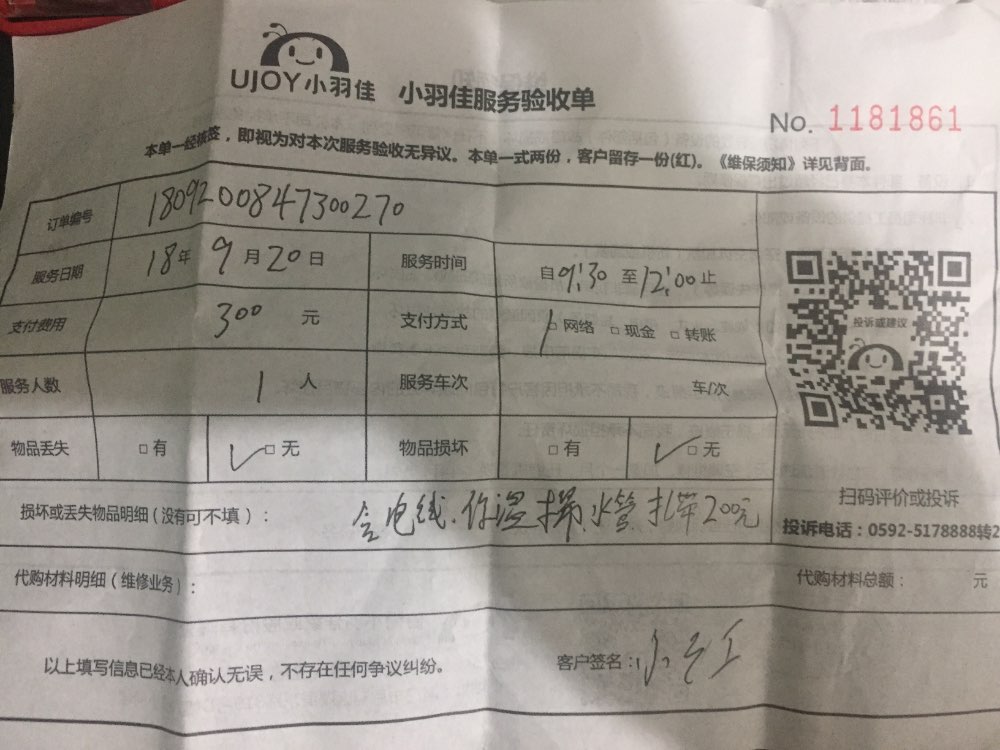 UJOY小羽佳 小羽佳服务验收单
No. 1181861
本单一经核签，即视为对本次服务验收无异议。本单一式两份，客户留存一份(红)。《维保须知》详见背面。
订单编号 1809200847300270
服务日期 18年 9月20日 服务时间 自9:30至12:00止
支付费用 300 元 支付方式 □网络 □现金 □转账
投诉或建议
服务人数 1 人 服务车次 车/次
物品丢失 □有 ✓□无 物品损坏 □有 ✓□无
扫码评价或投诉
损坏或丢失物品明细（没有可不填）： 含电线.保温 水管.扎带200元
投诉电话：0592-5178888转2
代购材料明细（维修业务）： 代购材料总额： 元
以上填写信息已经本人确认无误，不存在任何争议纠纷。 客户签名：